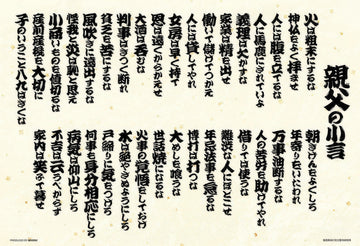 親父の小言
火は粗末にするな
神仏をよく拝ませ
人には腹を立てるな
人に馬鹿にされていよ
家業は精を出せ
義理は欠かすな
働いて儲けてつかえ
人には貸してやれ
女房は早く持て
恩は遠くからかえせ
大酒は呑むな
判事はきつく断れ
貧乏を苦にするな
風吹きに遠出するな
怪我と災は恥と思え
小商いものを値切るな
産前産後を大切に
子のいうこと八九はきくな
朝きげんをよくしろ
年寄りをいたわれ
万事油断するな
人の苦労を助けてやれ
借りては使うな
難渋な人にほどこせ
年忌法事を怠るな
博打は打つな
大めしを喰うな
世話焼になるな
火事の覚悟をしておけ
水は絶やさぬようにしろ
戸締りに気をつけろ
何事も身分相応にしろ
病気は仰山にしろ
不吉は云うべからず
家内は笑ふて暮せ